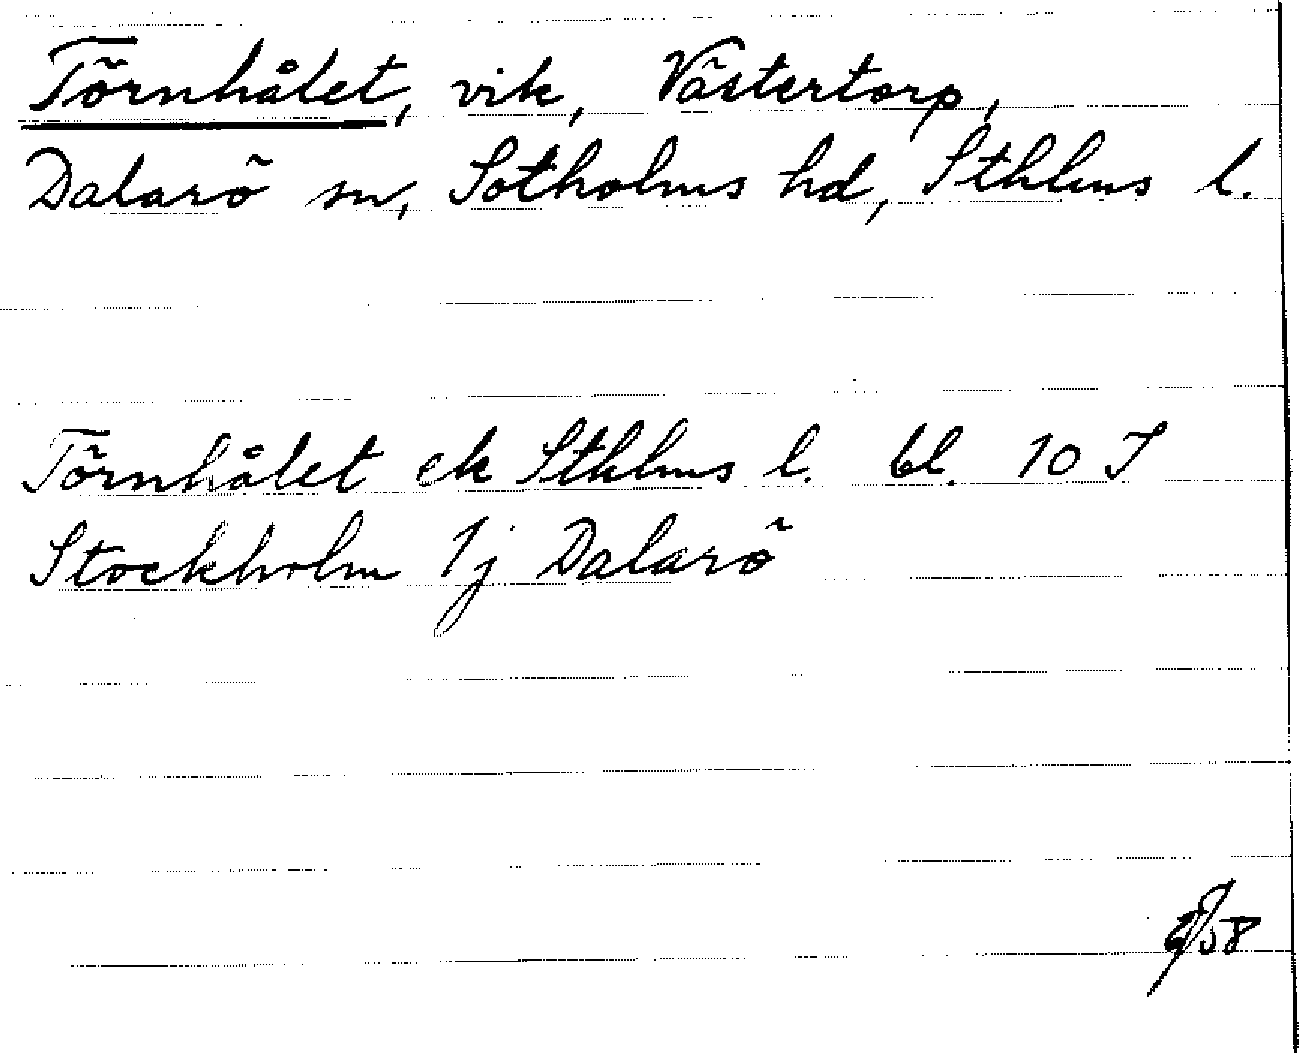 Törnhålet, vik, Västertorp,
Dalarö sn, Sotholms hd, Sthlms l.
Törnhålet ek Sthlms l. bl. 10 I
Stockholm 1j Dalarö